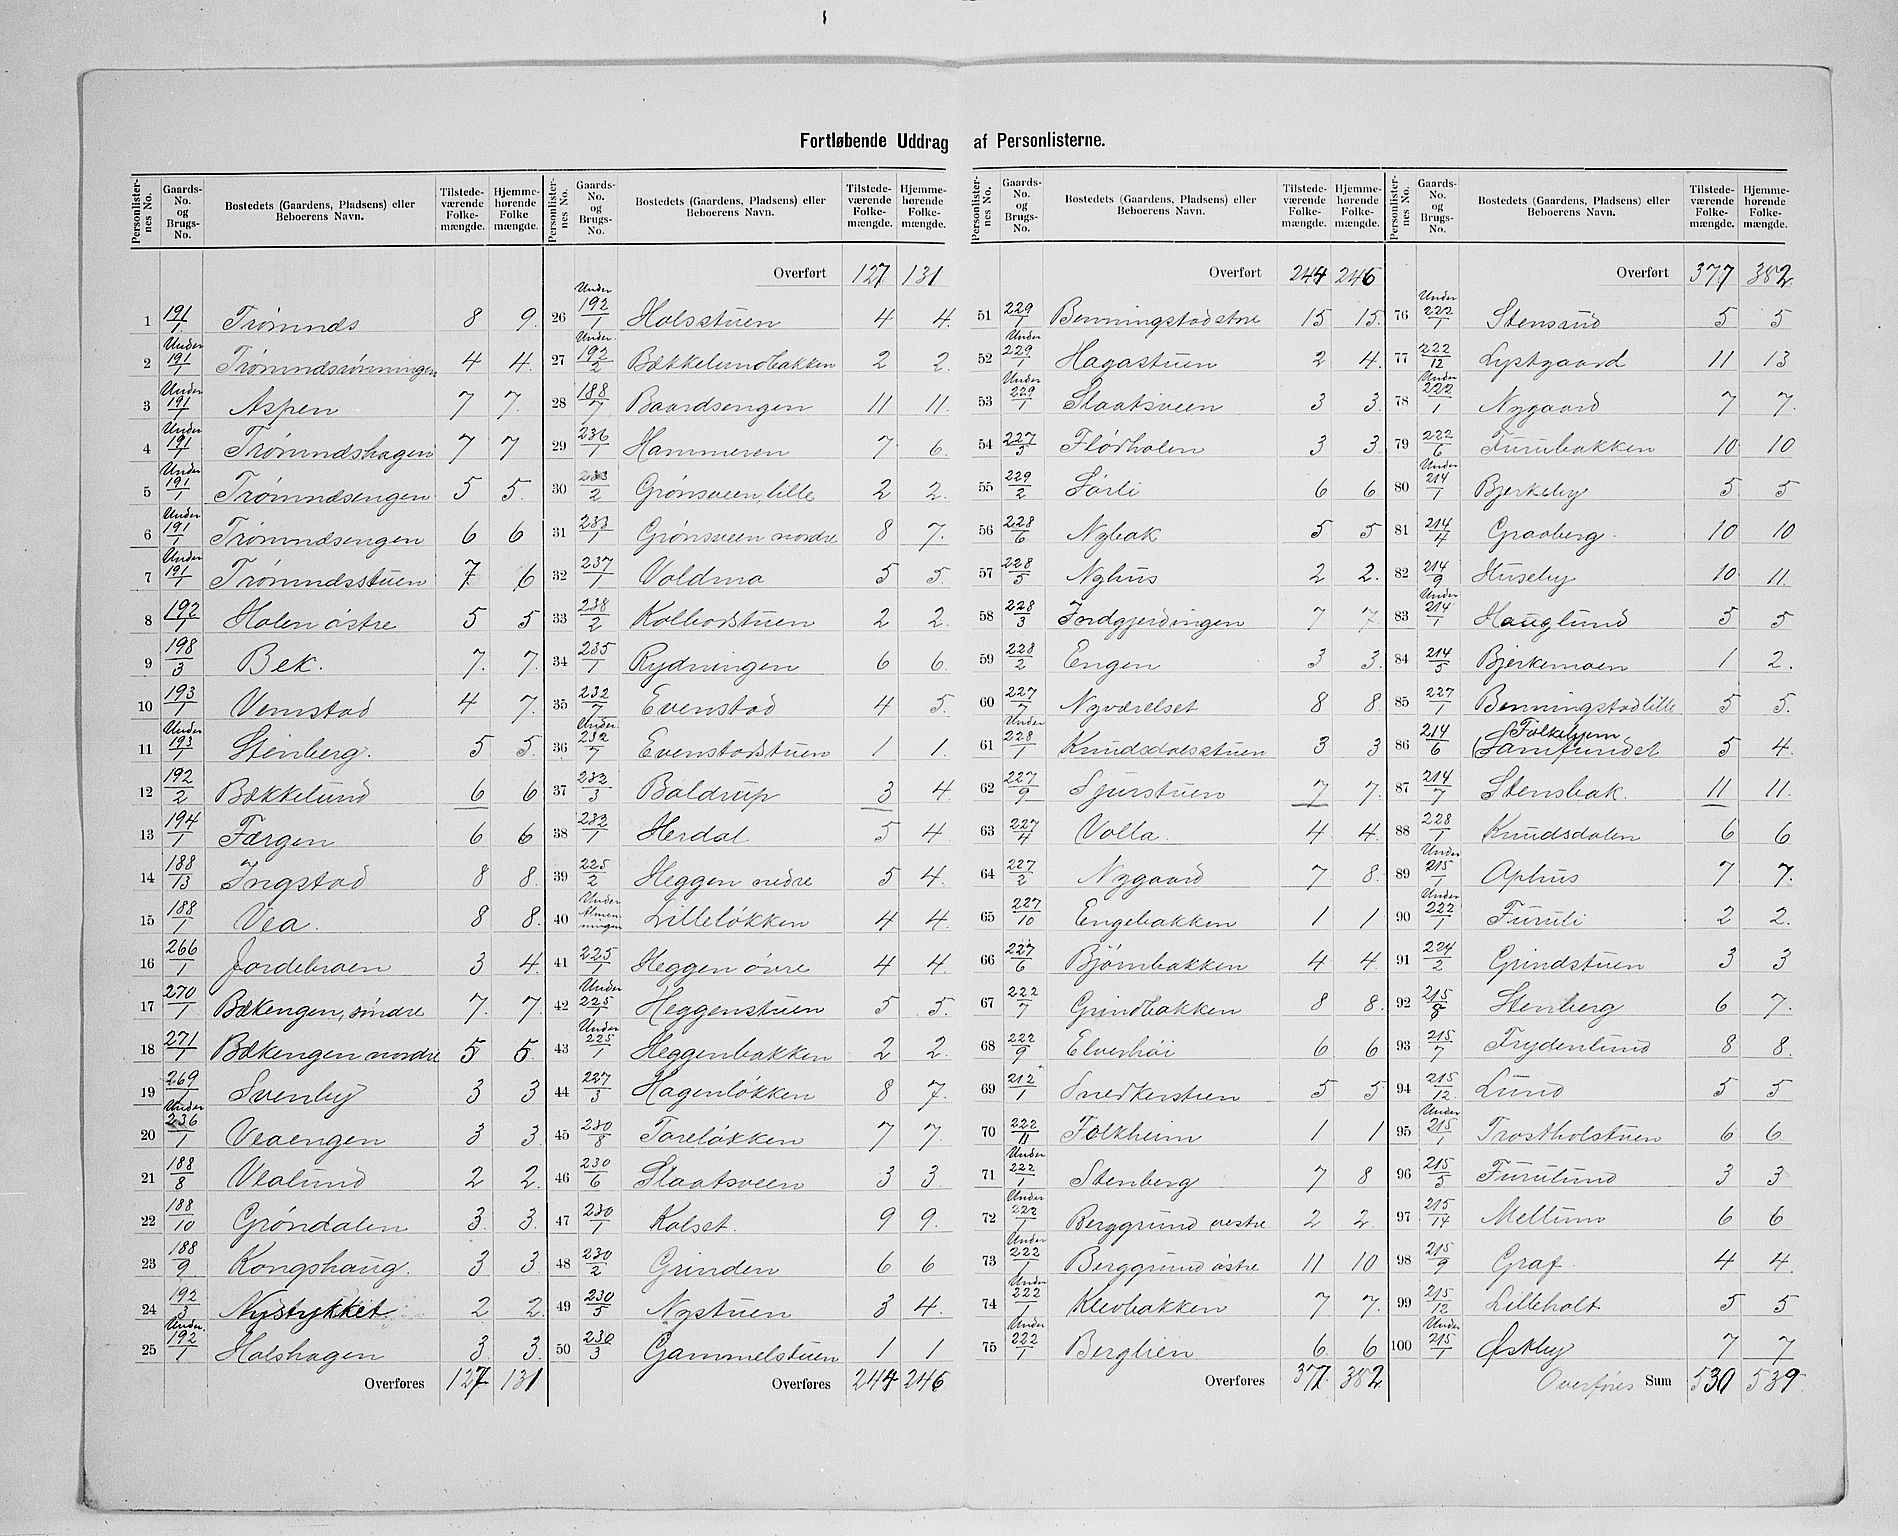 Fortløbende Uddrag af Personlisterne.
Personlister-nes No. | Gaards-No. og Brugs-No. | Bostedets (Gaardens, Pladsens) eller Beboerens Navn. | Tilstede-værende Folke-mængde. | Hjemme-hørende Folke mængde.
1 | 191/1 | Trømnds | 8 | 9.
2 | Under 191/1 | Trømndsrønningen | 4 | 4.
3 | Under 191/1 | Aspen | 7 | 7.
4 | Under 191/1 | Trømndshagen | 7 | 7
5 | Under 191/1 | Trømndsengen | 5 | 5.
6 | Under 191/1 | Trømndsengen | 6 | 6
7 | Under 191/1 | Trømndsstuen | 7 | 6
8 | 192/1 | Holen østre | 5 | 5
9 | 198/3 | Bek. | 7. | 7.
10 | 193/1 | Vemstad | 4 | 7.
11 | Under 193/1 | Stenberg. | 5 | 5.
12 | 192/2 | Bækkelund | 6 | 6
13 | 194/1 | Færgen | 6 | 6
14 | 188/13 | Ingstad | 8 | 8.
15 | 188/1 | Vea. | 8 | 8.
16 | 266/1 | Jordebraen | 3 | 4.
17 | 270/1 | Bækengen, søndre | 7. | 7.
18 | 271/1 | Bækengen nordre | 5 | 5.
19 | 269/1 | Svenby | 3 | 3
20 | Under 236/1 | Veaengen | 3 | 3.
21 | 188/8 | Vealund | 2 | 2.
22 | 188/10 | Grøndalen | 3. | 3.
23 | 188/9 | Kongshaug. | 3 | 3.
24 | 192/3 | Nystykket. | 2 | 2.
25 | Under 192/1 | Holshagen | 3 | 3.
Overføres | 127 | 131
Personlister-nes No. | Gaards-No. og Brugs-No. | Bostedets (Gaardens, Pladsens) eller Beboerens Navn. | Tilstede-værende Folke-mængde. | Hjemme-hørende Folke-mængde.
Overført | 127 | 131
26 | Under 192/1 | Holsstuen | 4 | 4.
27 | Under 192/2 | Bækkelundbakken | 2 | 2.
28 | 188/7 | Baardsengen | 11 | 11.
29 | 236/1 | Hammeren | 7 | 6.
30 | 233/2 | Grønsveen, lille | 2 | 2.
31 | 233/1 | Grønsveen nordre | 8 | 7.
32 | 237/1 | Voldmo | 5 | 5.
33 | 238/2 | Kolbotstuen | 2 | 2.
34 | 235/1 | Rydningen | 6 | 6.
35 | 232/7 | Evenstad | 4 | 5.
36 | Under 232/7 | Evenstadstuen | 1 | 1.
37 | 232/3 | Baldrup | 3 | 4.
38 | 232/1 | Herdal | 5 | 4
39 | 225/2 | Heggen nedre | 5 | 4.
40 | Under Almenningen | Lilleløkken | 4 | 4.
41 | 225/1 | Heggen øvre | 4 | 4.
42 | Under 225/1 | Heggenstuen | 5 | 5.
43 | Under 225/1 | Heggenbakken | 2 | 2.
44 | 227/3 | Hagenløkken | 8 | 7.
45 | 230/8 | Toreløkken | 7 | 7.
46 | 230/6 | Slaatsveen | 3 | 3.
47 | 230/1 | Kolset. | 9 | 9.
48 | 230/2 | Grinden | 6 | 6
49 | 230/5 | Nystuen | 3 | 4.
50 | 230/3 | Gammelstuen | 1 | 1
Overføres | 244 | 246
Personlister-nes No. | Gaards-No. og Brugs-No. | Bostedets (Gaardens, Pladsens) eller Beboerens Navn. | Tilstede-værende Folke-mængde. | Hjemme-hørende Folke-mængde.
Overført | 244 | 246
51 | 229/1 | Benningstadstre | 15 | 15.
52 | Under 229/1 | Hagastuen | 2 | 4.
53 | Under 229/1 | Slaatsveen | 3 | 3.
54 | 227/5 | Flødholen | 3 | 3.
55 | 229/2 | Sørli | 6 | 6
56 | 228/6 | Nybak | 5 | 5
57 | 228/5 | Nyhus | 2 | 2.
58 | 228/3 | Jordgjerdingen | 7 | 7.
59 | 228/2 | Engen | 3 | 3.
60 | 227/7 | Nyværelset | 8 | 8.
61 | Under 228/1 | Knudsdalsstuen | 3 | 3
62 | 227/9 | Sjurstuen | 7 | 7.
63 | 227/4 | Volla. | 4 | 4.
64 | 227/2 | Nygaard | 7 | 8.
65 | 227/10 | Engebakken | 1 | 1
66 | 227/6 | Bjørnbakken | 4 | 4.
67 | 222/7 | Grindbakken | 8 | 8.
68 | 222/9 | Elverhøi | 6 | 6
69 | 212/1 | Snedkerstuen | 5 | 5
70 | 222/11 | Folkheim | 1 | 1
71 | Under 222/1 | Stenberg | 7 | 8
72 | Under 222/1 | Berggrund vestre | 2 | 2.
73 | Under 222/1 | Berggrund østre | 11 | 10
74 | Under 222/1 | Klevbakken | 7 | 7.
75 | Under 222/1 | Berglien | 6. | 6
Overføres | 377. | 382
Personlister-nes No. | Gaards-No. og Brugs-No. | Bostedets (Gaardens, Pladsens) eller Beboerens Navn. | Tilstede-værende Folke-mængde. | Hjemme-hørende Folke-mængde.
Overført | 377 | 382
76 | Under 222/1 | Stensrud | 5 | 5
77 | 222/12 | Lystgaard | 11 | 13
78 | Under 222/1 | Nygaard | 7 | 7.
79 | 222/6 | Furubakken | 10 | 10
80 | Under 214/1 | Bjerkeby | 5 | 5
81 | 214/4 | Graaberg. | 10 | 10
82 | 214/9 | Huseby | 10 | 11
83 | Under 214/1 | Hauglund | 5 | 5
84 | 214/5 | Bjerkemoen | 1 | 2.
85 | 227/1 | Benningstadlille | 5 | 5.
86 | 214/6 | Folkehjem (Samfundet | 5 | 4.
87 | 214/7 | Stensbak. | 11 | 11.
88 | 228/1 | Knudsdalen | 6 | 6
89 | Under 215/1 | Ophus | 7 | 7.
90 | Under 222/1 | Furuli | 2 | 2.
91 | 224/2 | Grindstuen | 3 | 3
92 | 215/8 | Stenberg | 6 | 7.
93 | 215/7 | Frydenlund | 8 | 8.
94 | 215/12. | Lund | 5 | 5
95 | Under 215/1 | Trostholstuen | 6 | 6
96 | 215/5 | Furulund | 3 | 3
97 | 215/14 | Mellum | 6 | 6
98 | 215/9 | Graf. | 4 | 4.
99 | 215/12 | Lilleholt | 5 | 5
100 | Under 215/1 | Østby | 7 | 7
Overføres Sum | 530 | 539.